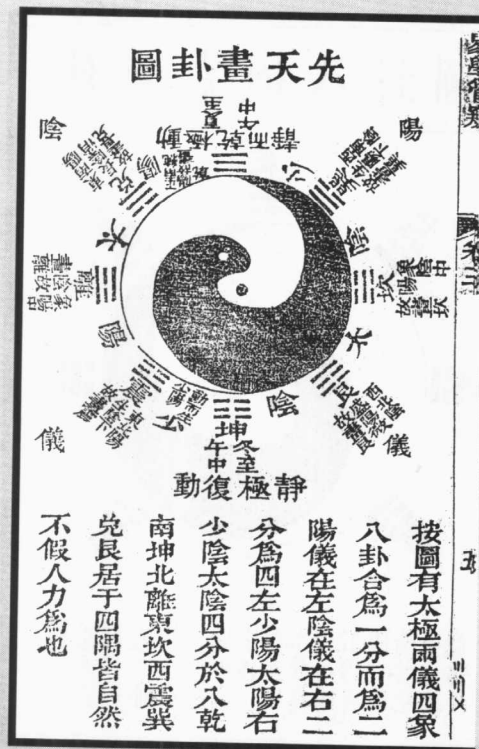 先天畫卦圖
陽
陰
儀
儀
夏至
午中
動極
乾
而靜
兌
離
震
坎
艮
太
陽
少
陰
太
陰
坤
冬至
午中
靜極復動
按圖有太極兩儀四象
八卦合爲一分而爲二
陽儀在左陰儀在右二
分爲四左少陽太陽右
少陰太陰四分於八乾
南坤北離東坎西震巽
兌艮居于四隅皆自然
不假人力爲也